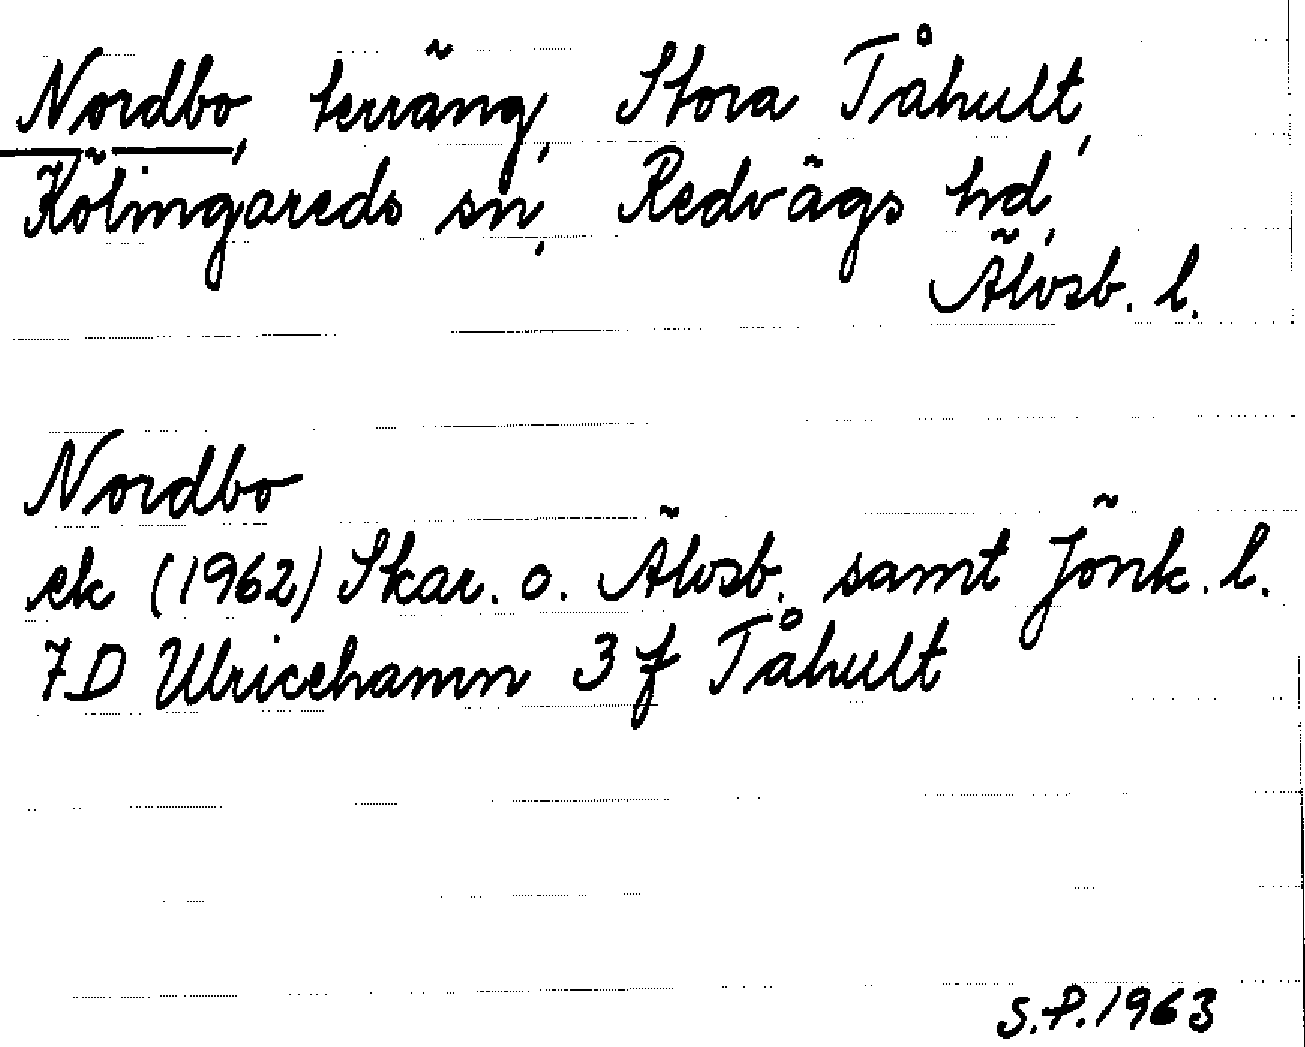 Nordbo, terräng, Stora Tåhult,
Kölingareds sn, Redvägs hd,
Älvsb. l.
Nordbo
ek (1962) Skar. o. Älvsb. samt Jönk. l.
7D Ulricehamn 3 f Tåhult
S.P. 1963